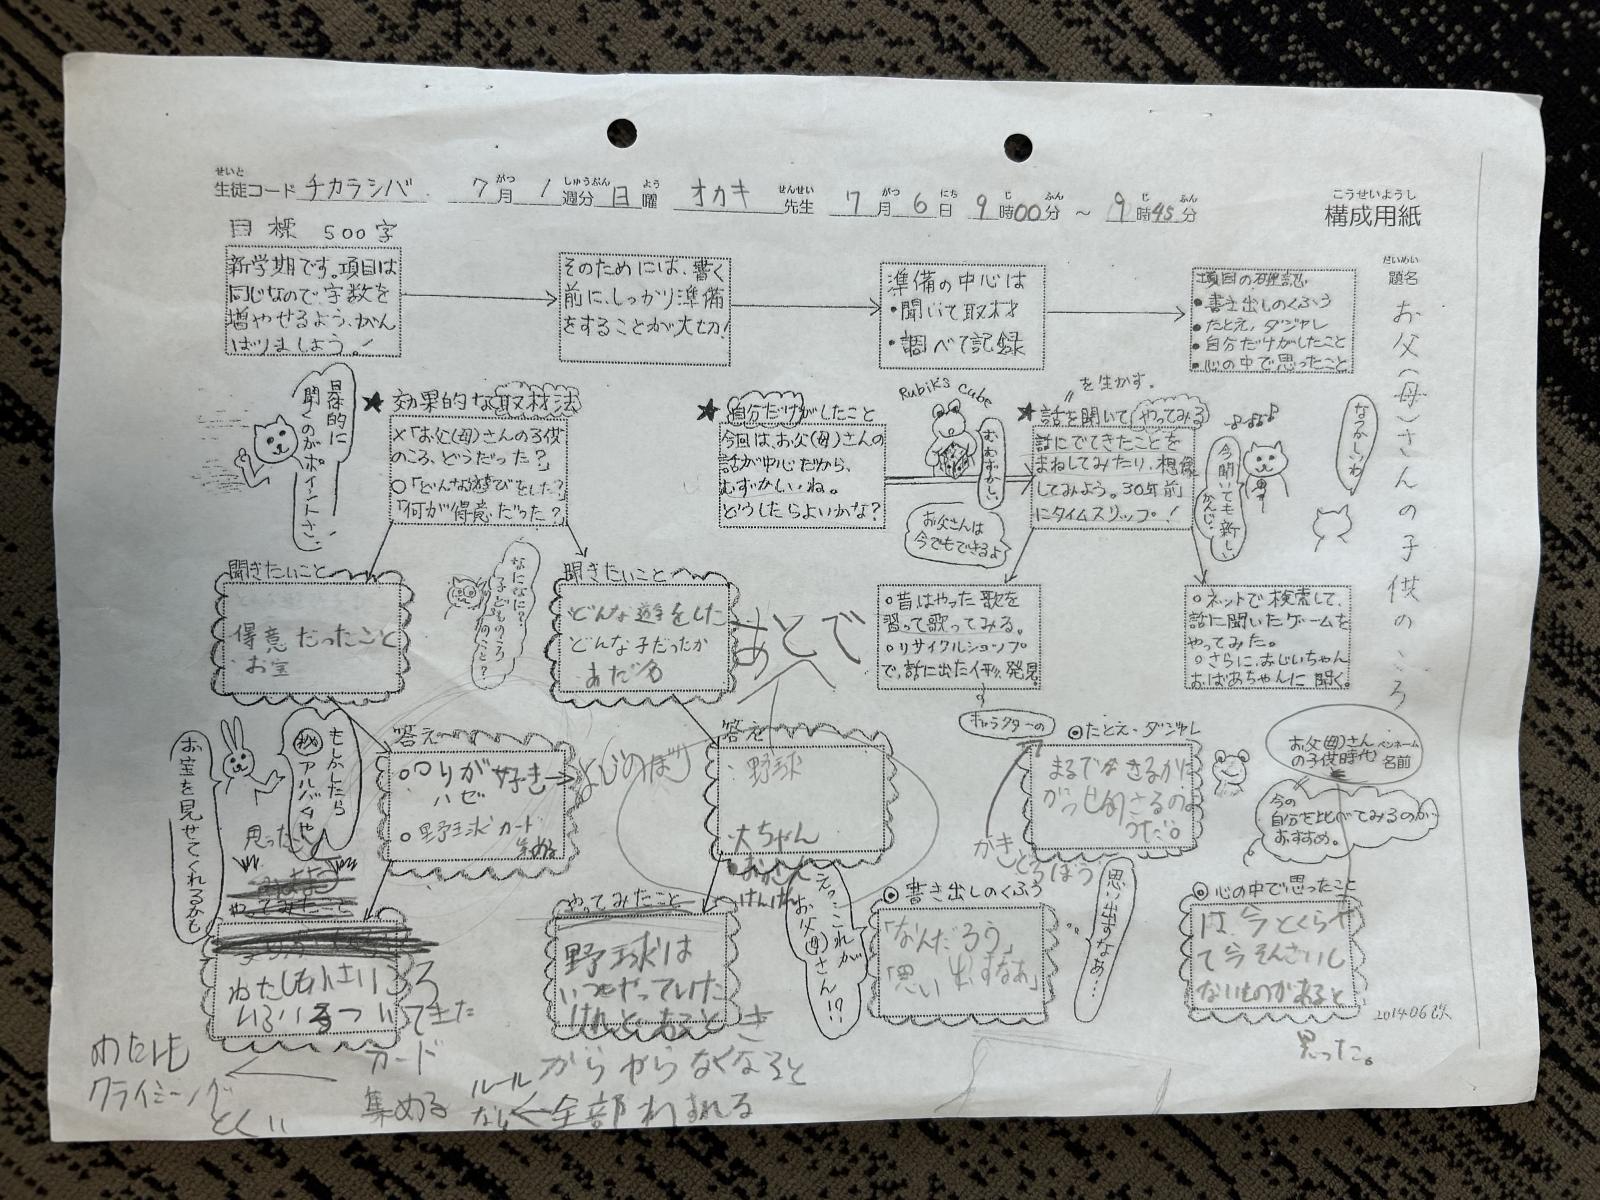 せいと
生徒コード チカラシバ 7月 1週分 日曜 オカキ 先生 7月 6日 9時00分 ～ 9時45分
がつ しゅうぶん よう せんせい がつ にち じ ふん じ ふん
こうせいようし
構成用紙
だいめい
題名
お父(母)さんの子供のころ
目標 500字
新学期です。項目は
同じなので、字数を
増やせるよう、がん
ばりましょう。!
そのためには、書く
前に、しっかり準備
をすることが大切!
準備の中心は
・聞いて取材
・調べて記録
項目の確認
・書き出しのくふう
・たとえ、ダジャレ
・自分だけがしたこと
・心の中で思ったこと
具体的に
聞くのがポイントさ。
★ 効果的な取材法
×「お父(母)さんの子供
のころ、どうだった?」
○「どんな遊びをした?」
「何が得意だった?」
★ 自分だけがしたこと
今回は、お父(母)さんの
話が中心だから、
むずかしいね。
どうしたらよいかな?
Rubik's Cube
むむずかしい
お父さんは
今でもできるよ
〃を生かす。
★ 話を聞いてやってみる
話にでてきたことを
まねしてみたり、想像
してみよう。30年前
にタイムスリップ!
今聞いても新しい
かんじ…
なつかしいわ
聞きたいこと
得意だったこと
お宝
なになに?
子どものころ
何のこと?
聞きたいこと
どんな遊をした
どんな子だったか
あだ名
あとで
○昔はやった歌を
習って歌ってみる。
○リサイクルショップ
で、話に出たイチ押し発見
○ネットで検索して、
話に聞いたゲームを
やってみた。
○さらに、おじいちゃん
おばあちゃんに聞く。
お宝を見せてくれるかも
もしかしたら
㊙アルバムや
思った
やってみたこと
答え
○のりが好き→よじのぼり
ハゼ
○野球カード
集める
答え
・野球
大ちゃん
キャラクターの
◎たとえ・ダジャレ
かきとろぼう
お父(母)さん
の子供時代
ペンネーム
名前
今の
自分と比べてみるのが
おすすめ。
わたしも小さいころ
いろいろついてきた
わたしも
クライミング
とくい
カード
集める
やってみたこと
野球は
いつもやっていた
けれど、おっとき
がらからなくなると
ルール
なし←全部わすれる
えっ、これが
お父(母)さん!?
◎書き出しのくふう
「なんだろう」
「思い出すなあ」
思い出すなあ…
◎心の中で思ったこと
は、今とくらべ
て今そんざいし
ないものがあると
思った。
2014.06改